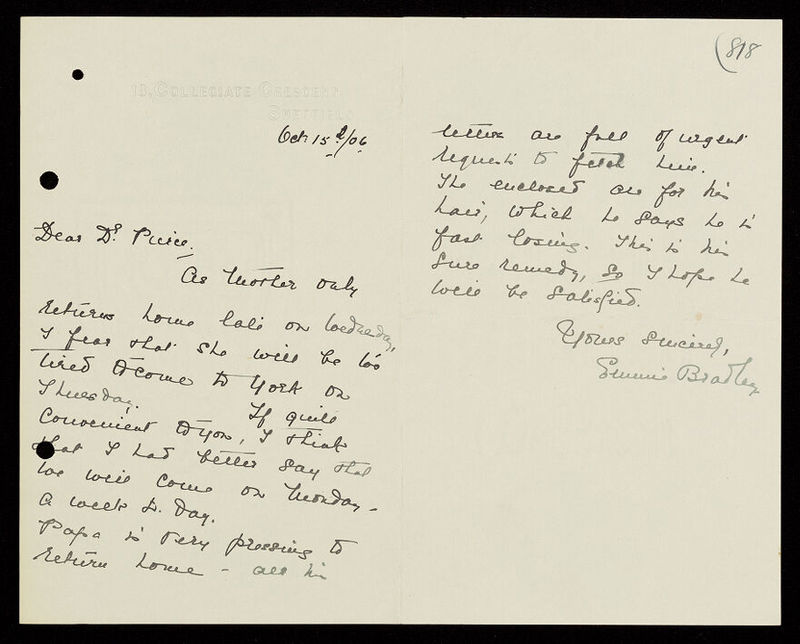 (818
13, COLLEGIATE CRESCENT,
SHEFFIELD.
Oct 15th/06
Dear Dr Pierce,
As Mother only
returns home late on Wednesday,
I fear that she will be too
tired to come to York on
Thursday. If quite
convenient to you, I think
that I had better say that
we will come on Monday -
a week to-day.
Papa is very pressing to
return home - all his
letters are full of urgent
requests to fetch him.
The enclosed are for his
hair, which he says he is
fast losing. This is his
sure remedy, so I hope he
will be satisfied.
Yours sincerely,
Emmie Bradley